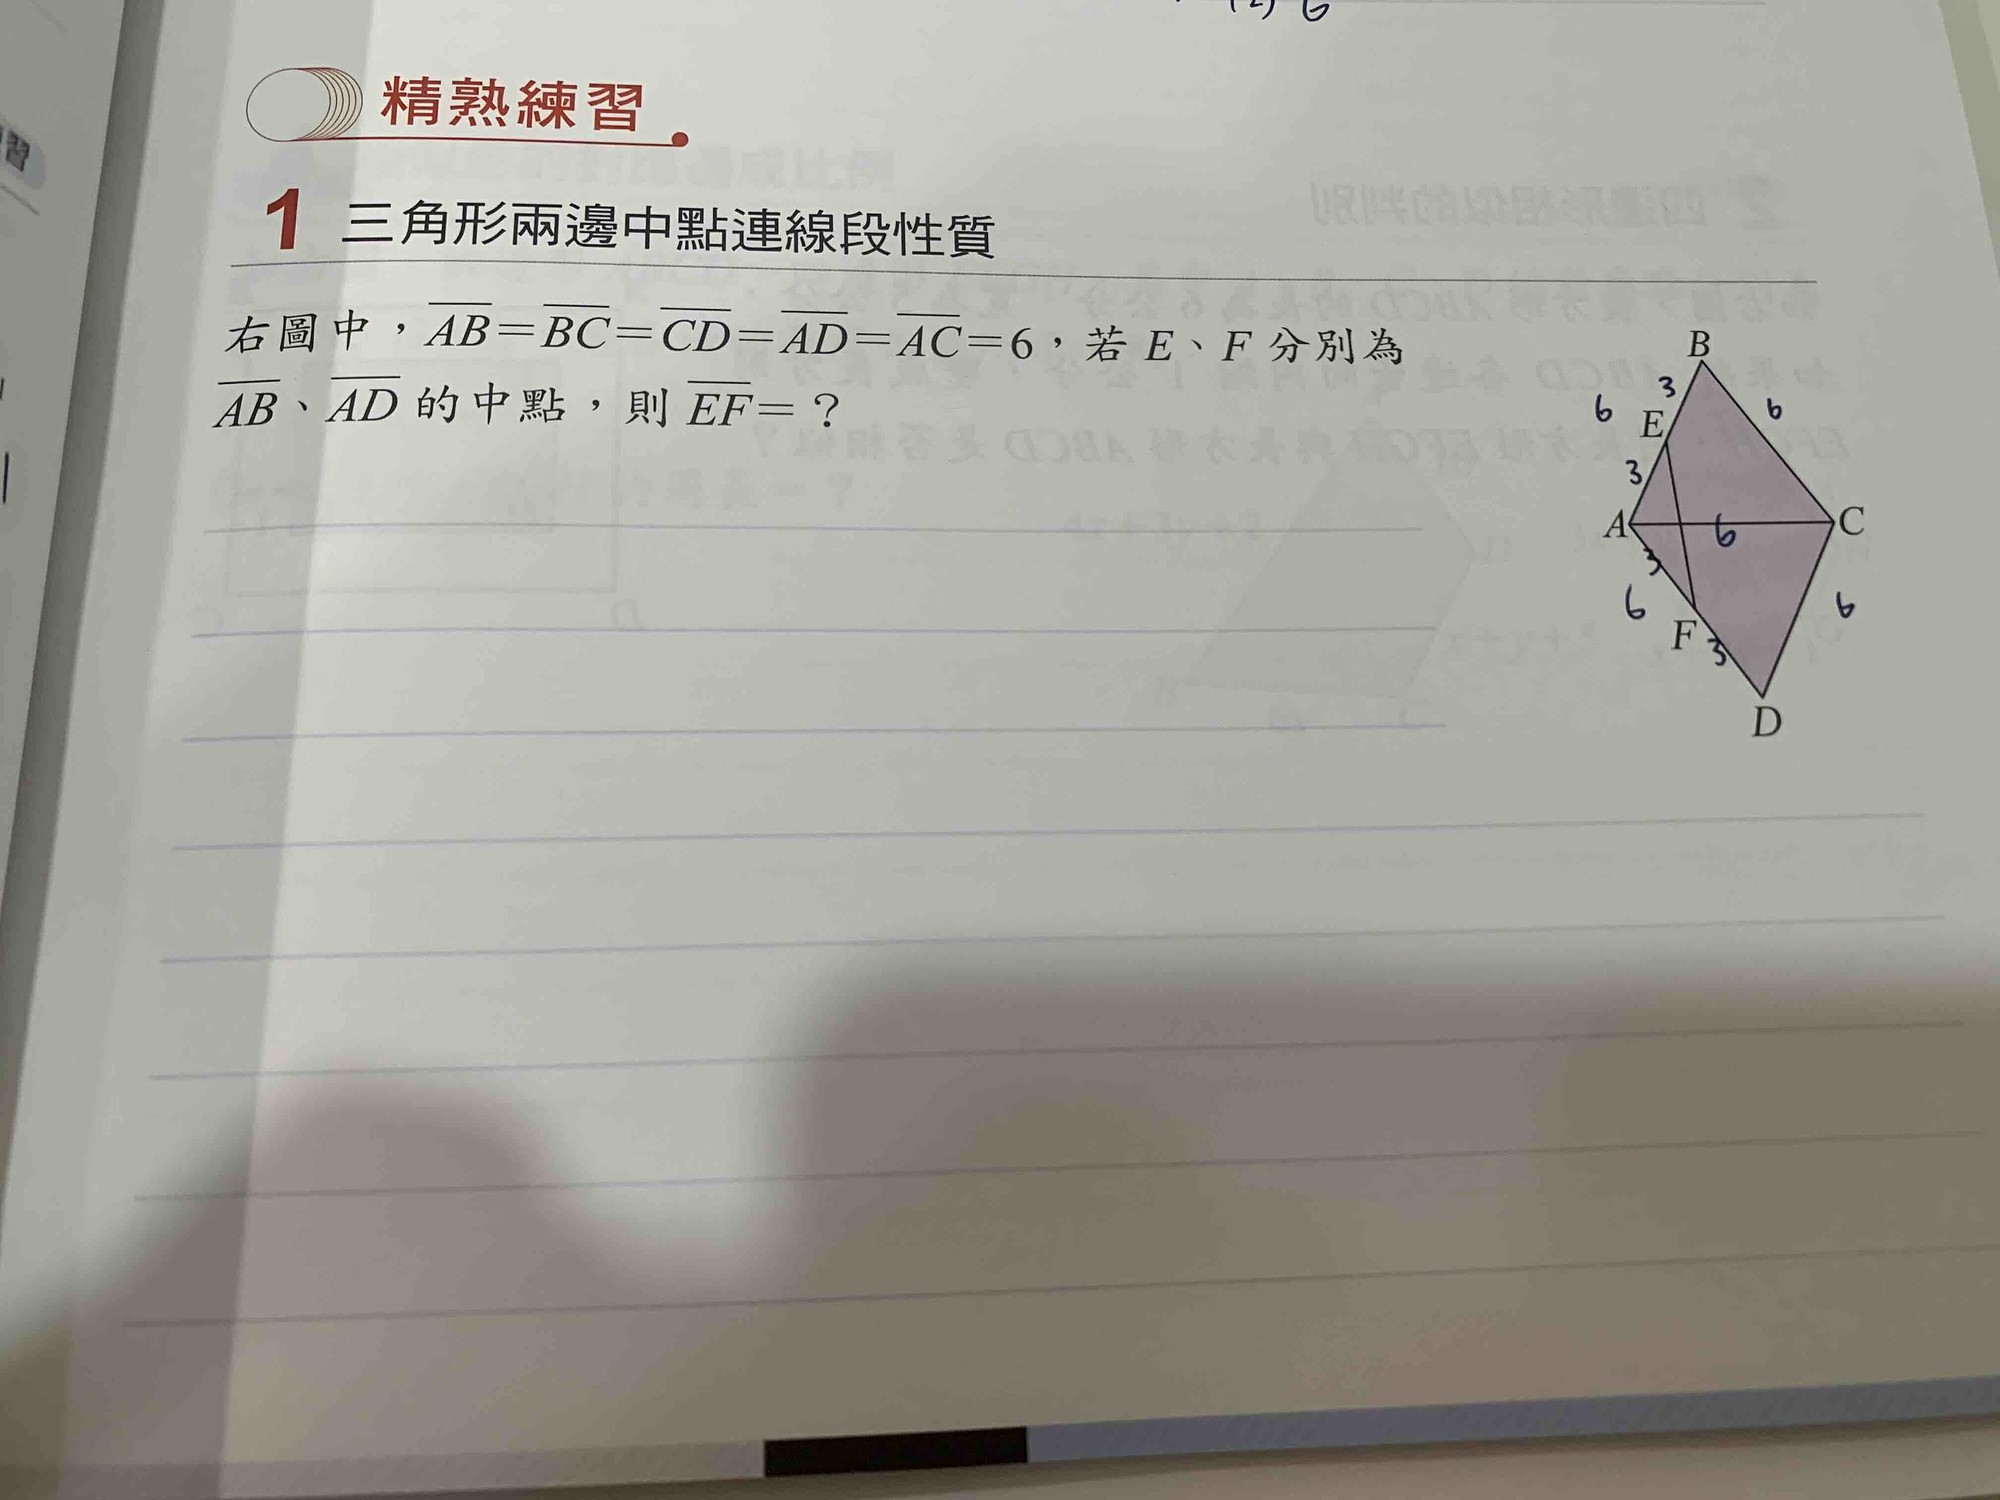 (2) 6
習
精熟練習
1 三角形兩邊中點連線段性質
右圖中，AB=BC=CD=AD=AC=6，若 E、F 分別為
AB、AD 的中點，則 EF=？
B
3
6
6
E
3
A
6
C
3
6
6
F
3
D